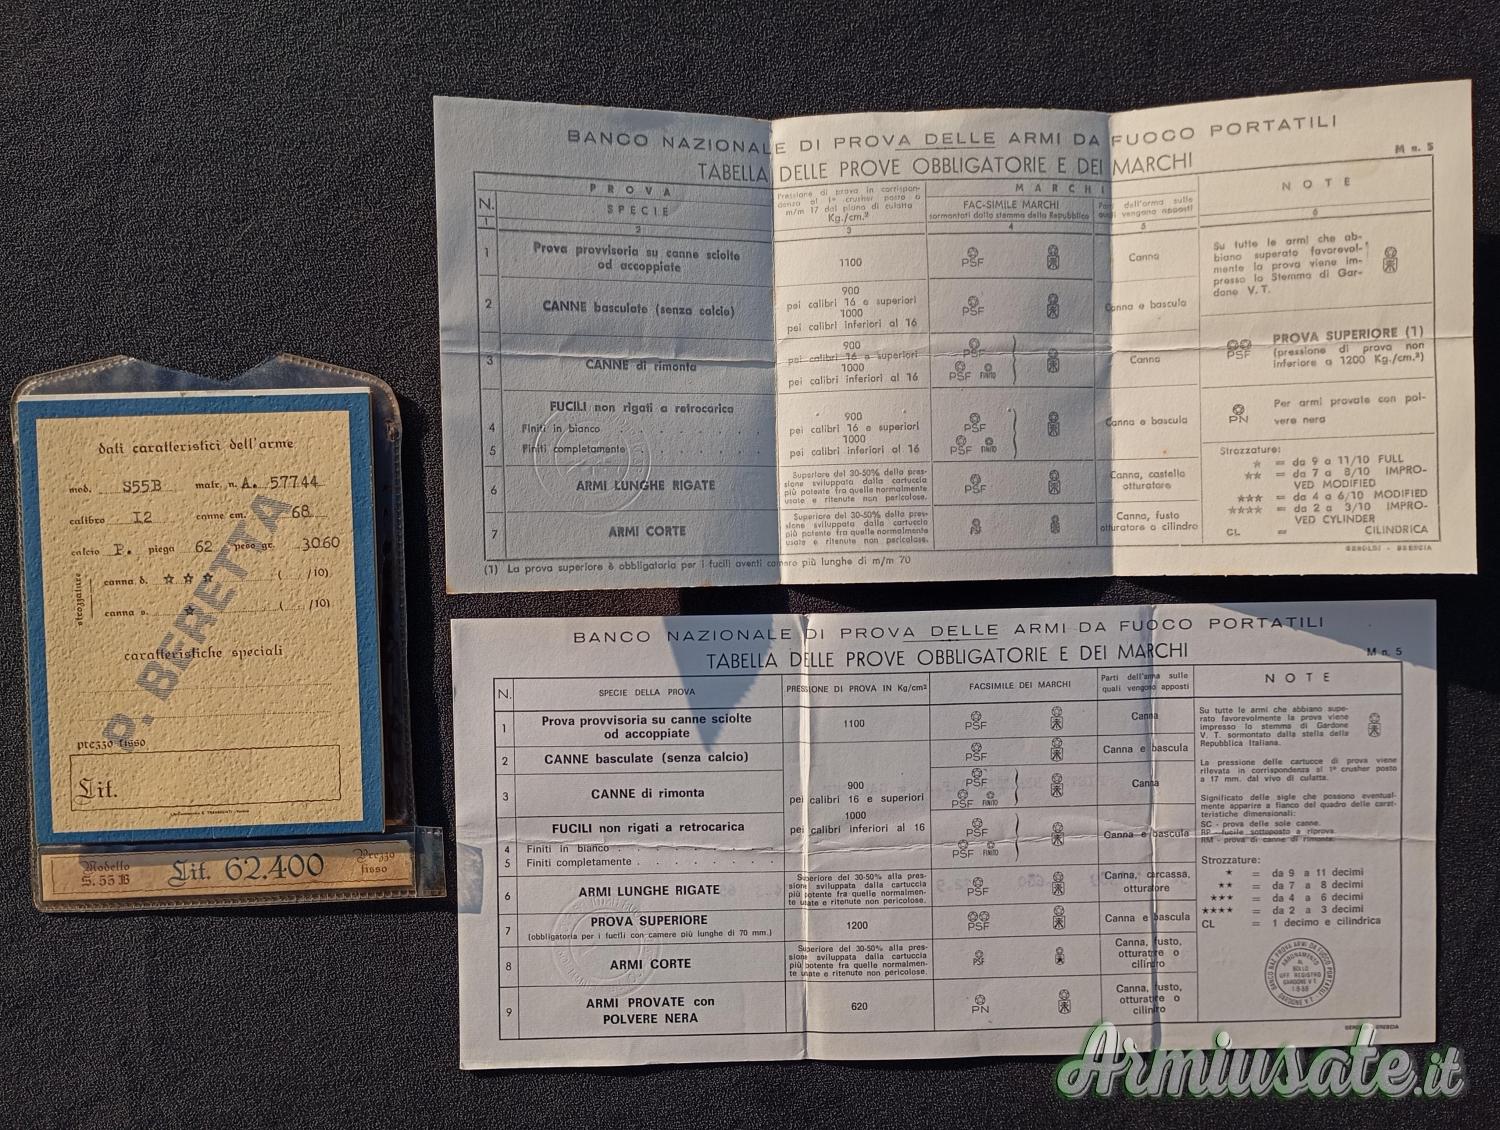 dati caratteristici dell'arme
mod. S55B matr. n. A. 57744
calibro I2 canne cm. 68
calcio P. piega 62 peso gr. 3060
strozzature
canna d. ☆ ☆ ☆ ( /10)
canna s. ☆ ( /10)
P. BERETTA
caratteristiche speciali
prezzo fisso
Lit.
Modello S. 55 B Lit. 62.400 Prezzo fisso
BANCO NAZIONALE DI PROVA DELLE ARMI DA FUOCO PORTATILI
TABELLA DELLE PROVE OBBLIGATORIE E DEI MARCHI
M n. 5
N.
PROVA
SPECIE
Pressione di prova in corrispon-
denza al 1° crusher posto a
m/m 17 dal piano di culatta
Kg./cm.²
MARCHI
FAC-SIMILE MARCHI
sormontati dallo stemma della Repubblica
Parti dell'arma sulle
quali vengono apposti
NOTE
1 2 3 4 5 6
1 Prova provvisoria su canne sciolte
od accoppiate
1100
PSF
Canna
2 CANNE basculate (senza calcio)
900
pei calibri 16 e superiori
1000
pei calibri inferiori al 16
PSF
Canna e bascula
3 CANNE di rimonta
900
pei calibri 16 e superiori
1000
pei calibri inferiori al 16
PSF
PSF FINITO
Canna
FUCILI non rigati a retrocarica
4 Finiti in bianco
5 Finiti completamente
900
pei calibri 16 e superiori
1000
pei calibri inferiori al 16
PSF
PSF FINITO
Canna e bascula
6 ARMI LUNGHE RIGATE
Superiore del 30-50% della pres-
sione sviluppata dalla cartuccia
più potente fra quelle normalmente
usate e ritenute non pericolose.
PSF
Canna, castello
otturatore
7 ARMI CORTE
Superiore del 30-50% della pres-
sione sviluppata dalla cartuccia
più potente fra quelle normalmente
usate e ritenute non pericolose.
Canna, fusto
otturatore o cilindro
Su tutte le armi che ab-
biano superato favorevol-
mente la prova viene im-
presso lo Stemma di Gar-
done V. T.
PSF
PROVA SUPERIORE (1)
(pressione di prova non
inferiore a 1200 Kg./cm.²)
PN
Per armi provate con pol-
vere nera
Strozzature:
★ = da 9 a 11/10 FULL
★★ = da 7 a 8/10 IMPRO-
VED MODIFIED
★★★ = da 4 a 6/10 MODIFIED
★★★★ = da 2 a 3/10 IMPRO-
VED CYLINDER
CL = CILINDRICA
(1) La prova superiore è obbligatoria per i fucili aventi camere più lunghe di m/m 70
GEROLDI - BRESCIA
BANCO NAZIONALE DI PROVA DELLE ARMI DA FUOCO PORTATILI
TABELLA DELLE PROVE OBBLIGATORIE E DEI MARCHI
M n. 5
N. SPECIE DELLA PROVA PRESSIONE DI PROVA IN Kg/cm² FACSIMILE DEI MARCHI
Parti dell'arma sulle
quali vengono apposti
NOTE
1 Prova provvisoria su canne sciolte
od accoppiate
1100
PSF
Canna
2 CANNE basculate (senza calcio)
PSF
Canna e bascula
3 CANNE di rimonta
900
pei calibri 16 e superiori
1000
pei calibri inferiori al 16
PSF
PSF FINITO
Canna
FUCILI non rigati a retrocarica
4 Finiti in bianco
5 Finiti completamente
PSF
PSF FINITO
Canna e bascula
6 ARMI LUNGHE RIGATE
Superiore del 30-50% alla pres-
sione sviluppata dalla cartuccia
più potente fra quelle normalmen-
te usate e ritenute non pericolose.
PSF
Canna, carcassa,
otturatore
7 PROVA SUPERIORE
(obbligatoria per i fucili con camere più lunghe di 70 mm.)
1200
PSF
Canna e bascula
8 ARMI CORTE
Superiore del 30-50% alla pres-
sione sviluppata dalla cartuccia
più potente fra quelle normalmen-
te usate e ritenute non pericolose.
PSF
Canna, fusto,
otturatore o
cilindro
9 ARMI PROVATE con
POLVERE NERA
620
PN
Canna, fusto,
otturatore o
cilindro
Su tutte le armi che abbiano supe-
rato favorevolmente la prova viene
impresso lo stemma di Gardone
V. T. sormontato dalla stella della
Repubblica Italiana.
La pressione delle cartucce di prova viene
rilevata in corrispondenza al 1° crusher posto
a 17 mm. dal vivo di culatta.
Significato delle sigle che possono eventual-
mente apparire a fianco del quadro delle carat-
teristiche dimensionali:
SC - prova delle sole canne.
RP - fucile sottoposto a riprova.
RM - prova di canne di rimonta.
Strozzature:
★ = da 9 a 11 decimi
★★ = da 7 a 8 decimi
★★★ = da 4 a 6 decimi
★★★★ = da 2 a 3 decimi
CL = 1 decimo e cilindrica
BANCO NAZ. PROVA ARMI DA FUOCO PORTATILI
ABBONAMENTO
AL
BOLLO
UFF. REGISTRO
GARDONE V T
GARDONE V.T.
BRESCIA
Armiusate.it